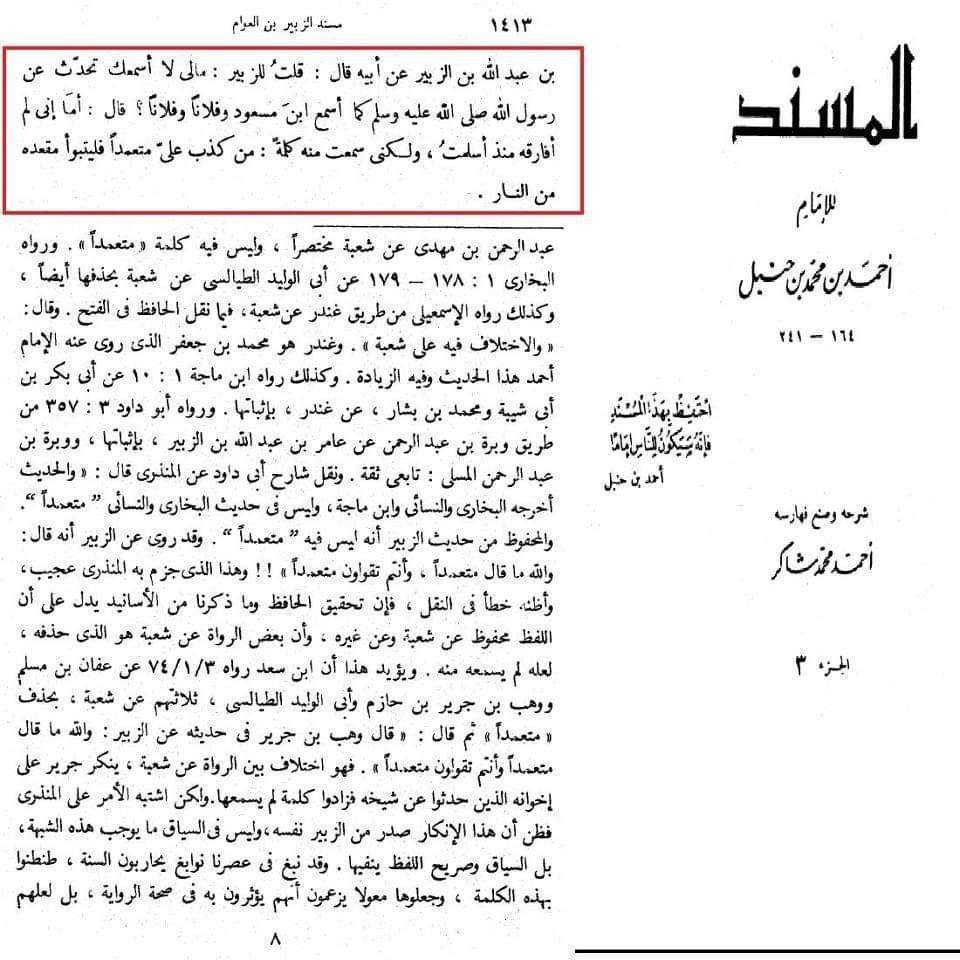 ١٤١٣
مسند الزبير بن العوام
بن عبد الله بن الزبير عن أبيه قال : قلتُ للزبير : مالى لا أسمعك تحدّث عن
رسول الله صلى الله عليه وسلم كما أسمع ابنَ مسعود وفلاناً وفلاناً ؟ قال : أمَا إنى لم
أفارقه منذ أسلمتُ ، ولكنى سمعت منه كلمةً : من كذب علىّ متعمداً فليتبوأ مقعده
من النار .
عبد الرحمن بن مهدى عن شعبة مختصراً ، وليس فيه كلمة « متعمداً » . ورواه
البخارى ١ : ١٧٨ – ١٧٩ عن أبى الوليد الطيالسى عن شعبة بحذفها أيضاً ،
وكذلك رواه الإسمعيلى من طريق غندر عن شعبة ، فيما نقل الحافظ فى الفتح . وقال :
« والاختلاف فيه على شعبة » . وغندر هو محمد بن جعفر الذى روى عنه الإمام
أحمد هذا الحديث وفيه الزيادة . وكذلك رواه ابن ماجة ١ : ١٠ عن أبى بكر بن
أبى شيبة ومحمد بن بشار ، عن غندر ، بإثباتها . ورواه أبو داود ٣ : ٣٥٧ من
طريق وبرة بن عبد الرحمن عن عامر بن عبد الله بن الزبير ، بإثباتها ، ووبرة بن
عبد الرحمن المسلى : تابعى ثقة . ونقل شارح أبى داود عن المنذرى قال : « والحديث
أخرجه البخارى والنسائى وابن ماجة ، وليس فى حديث البخارى والنسائى ” متعمداً “ .
والمحفوظ من حديث الزبير أنه ليس فيه ” متعمداً “ . وقد روى عن الزبير أنه قال :
والله ما قال متعمداً ، وأنتم تقولون متعمداً » !! وهذا الذى جزم به المنذرى عجيب ،
وأظنه خطأ فى النقل ، فإن تحقيق الحافظ وما ذكرنا من الأسانيد يدل على أن
اللفظ محفوظ عن شعبة وعن غيره ، وأن بعض الرواة عن شعبة هو الذى حذفه ،
لعله لم يسمعه منه . ويؤيد هذا أن ابن سعد رواه ٧٤/١/٣ عن عفان بن مسلم
ووهب بن جرير بن حازم وأبى الوليد الطيالسى ، ثلاثتهم عن شعبة ، بحذف
« متعمداً » ثم قال : « قال وهب بن جرير فى حديثه عن الزبير : والله ما قال
متعمداً وأنتم تقولون متعمداً » . فهو اختلاف بين الرواة عن شعبة ، ينكر جرير على
إخوانه الذين حدثوا عن شيخه فزادوا كلمة لم يسمعها . ولكن اشتبه الأمر على المنذرى
فظن أن هذا الإنكار صدر من الزبير نفسه ، وليس فى السياق ما يوجب هذه الشبهة ،
بل السياق وصريح اللفظ ينفيها . وقد نبغ فى عصرنا نوابغ يحاربون السنة ، طنطنوا
بهذه الكلمة ، وجعلوها معولا يزعمون أنهم يؤثرون به فى صحة الرواية ، بل لعلهم
٨
المسند
للإمام
أحمد بن محمد بن حنبل
١٦٤ – ٢٤١
احتفظ بهذا المسند
فإنه سيكون للناس إماما
أحمد بن حنبل
شرحه وصنع فهارسه
أحمد محمد شاكر
الجزء ٣